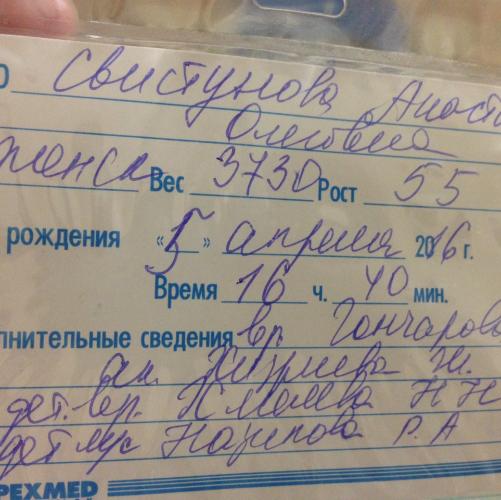 О Свистунова Анаст
Олеговна
женск Вес 3730 Рост 55
рождения «5» апреля 2016 г.
Время 16 ч. 40 мин.
лнительные сведения вр. Гончарова
ак. Ж.
дет. вр. Н Н
дет Р. А
РЕХМЕD